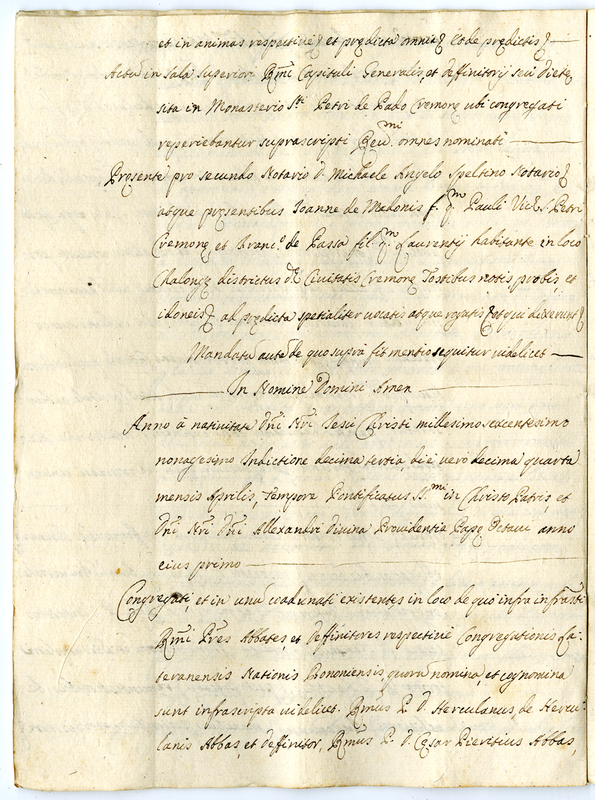 et in animas respectivè et prędicta omnia et de prędictis
Actũ in sala superiori Rm̃i Capituli Generalis, et deffinitorij seu dietę
sita in Monasterio Sti Petri de Pado Cremonę ubi congregati
reperiebantur suprascripti Reu.mi omnes nominati
Pręsente pro secundo Notario d. Michaele Angelo Speltino Notario
atque pręsentibus Ioanne de Madonis f. q.m Pauli Vic.ę S. Petri
Cremonę et Franc.o de Passa fil. q.m Laurentij habitante in loco
districtus dę Civitatis Cremonę Testibus notis probis, et
idoneis ad prędicta spetialiter vocatis atque rogatis et qui dixerunt
Mandatũ autẽ de quo supra fit mentio sequitur videlicet
In Nomine Domini Amen
Anno à nativitate Dñi Nr̃i Iesu Christi millesimo sexcentesimo
nonagesimo Indictione decima tertia, die vero decima quarta
mensis Aprilis, Tempore Pontificatus SS.mi in Christo Patris, et
Dñi Nr̃i Dñi Alexandri divina Providentia Papę Octavi anno
eius primo
Congregati, et in unũ coadunati existentes in loco de quo infra infras̃ti
Rm̃i Pr̃es Abbates, et deffinitores respectivè Congregationis La-
teranensis Nationis Bononiensis quorũ nomina et cognomina
sunt infrascripta videlicet. Rm̃us P. D. Herculanus de Hercu-
lanis Abbas, et deffinitor, Rm̃us P. D. Cęsar Abbas,